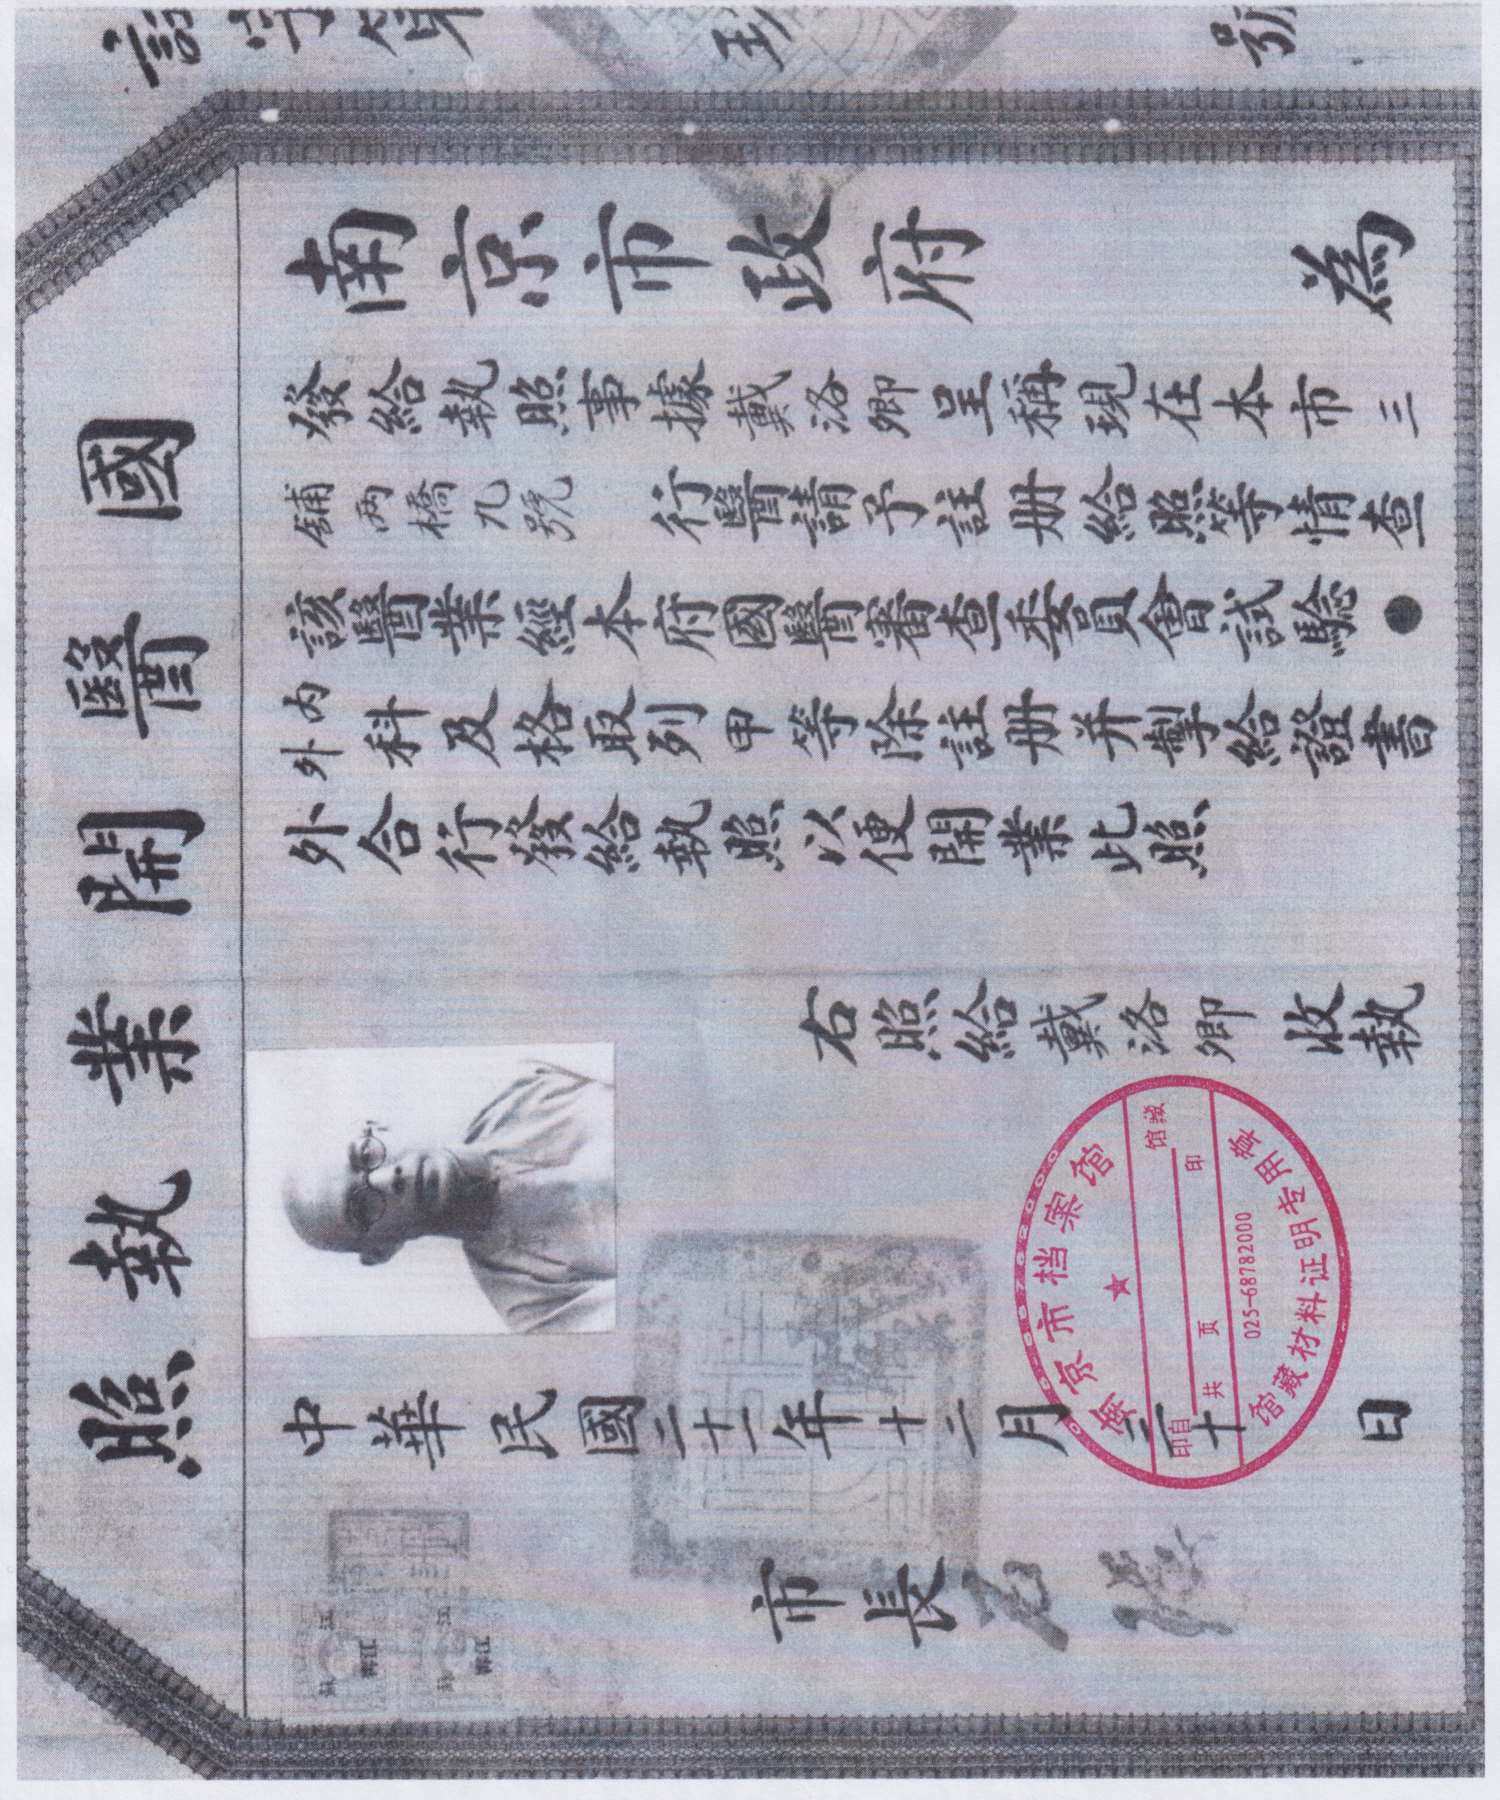 國醫開業執照
南京市政府 為
發給執照事據戴洛卿呈稱現在本市三
舖兩橋九號 行醫請予註册給照等情查
該醫業經本府國醫審查委員會試驗
內外科及格取列甲等除註册并掣給證書
外合行發給執照以便開業此照
右照給戴洛卿收執
中華民國二十一年十二月二十日
市長石瑛
南京市档案馆
印自 馆藏
共 页 印
025-68782000
馆藏材料证明专用章
號